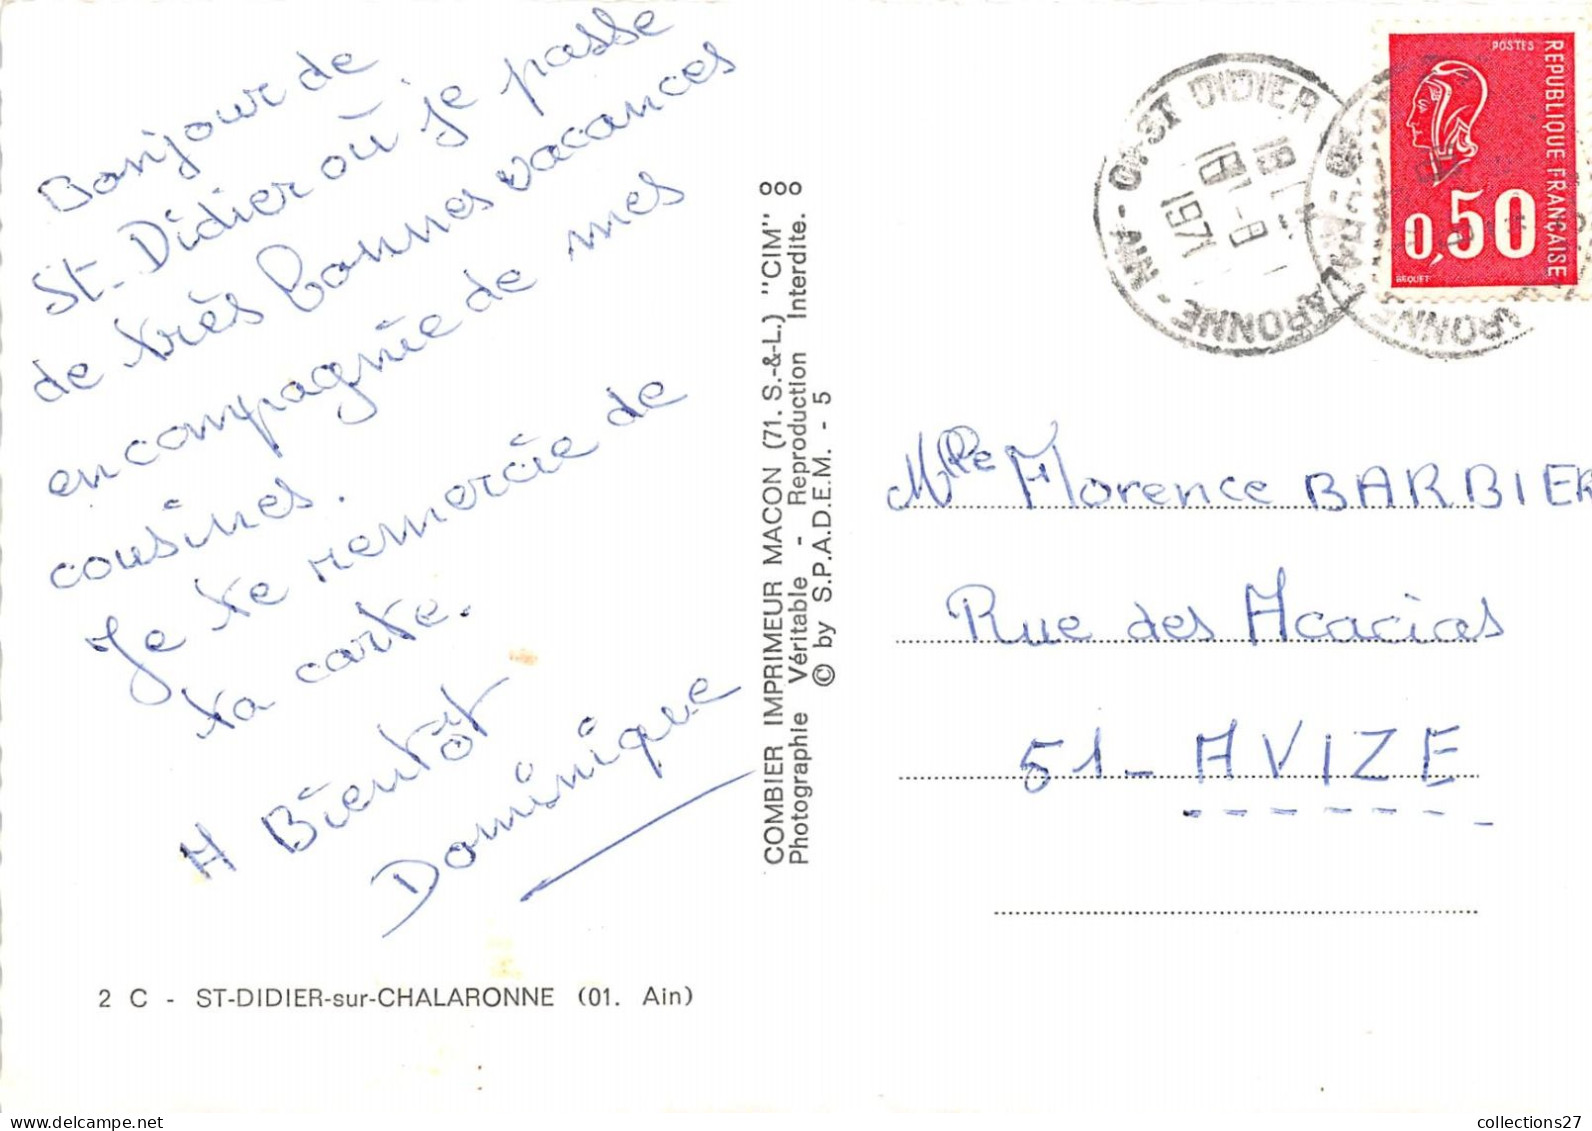 Bonjour de
St. Didier où je passe
de très bonnes vacances
en compagnie de mes
cousines.
Je te remercie de
ta carte.
A Bientôt
Dominique
2 C - ST-DIDIER-sur-CHALARONNE (01. Ain)
COMBIER IMPRIMEUR MACON (71. S.-&-L.) "CIM"
Photographie Véritable - Reproduction Interdite.
© by S.P.A.D.E.M. - 5
01-ST DIDIER
AIN
1971
POSTES
REPUBLIQUE FRANÇAISE
0,50
BEQUET
Mlle Florence BARBIER
Rue des Acacias
51-AVIZE
collections27